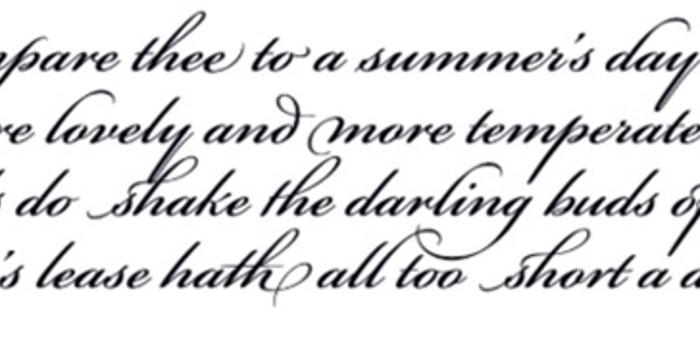 mpare thee to a summer's day
re lovely and more temperate
s do shake the darling buds o
's lease hath all too short a d